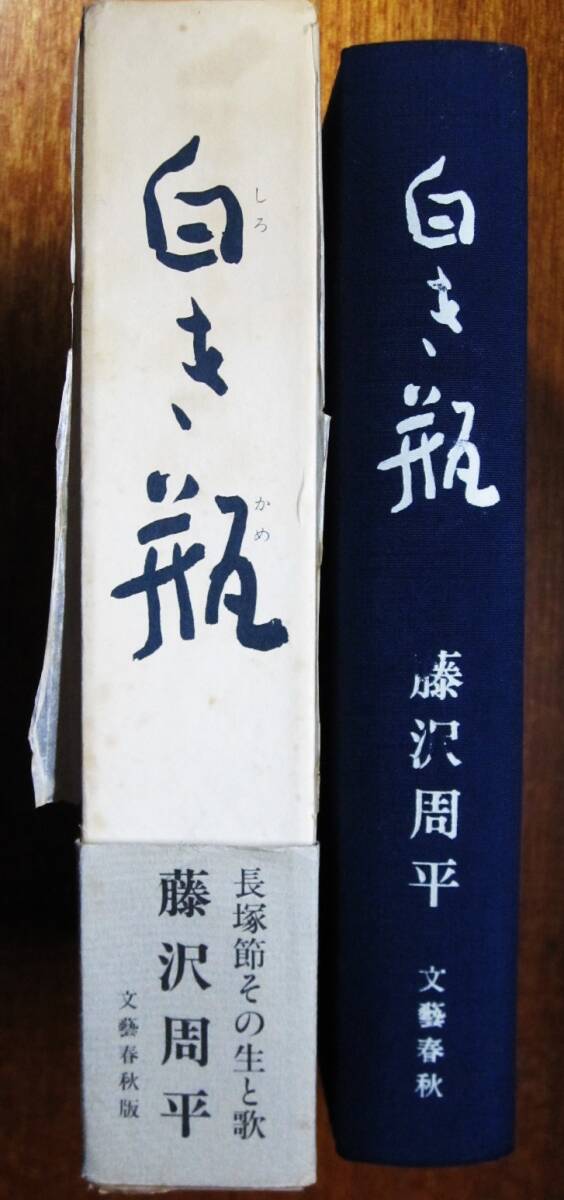 白き瓶
しろ
かめ
長塚節その生と歌
藤沢周平
文藝春秋版
白き瓶
藤沢周平
文藝春秋